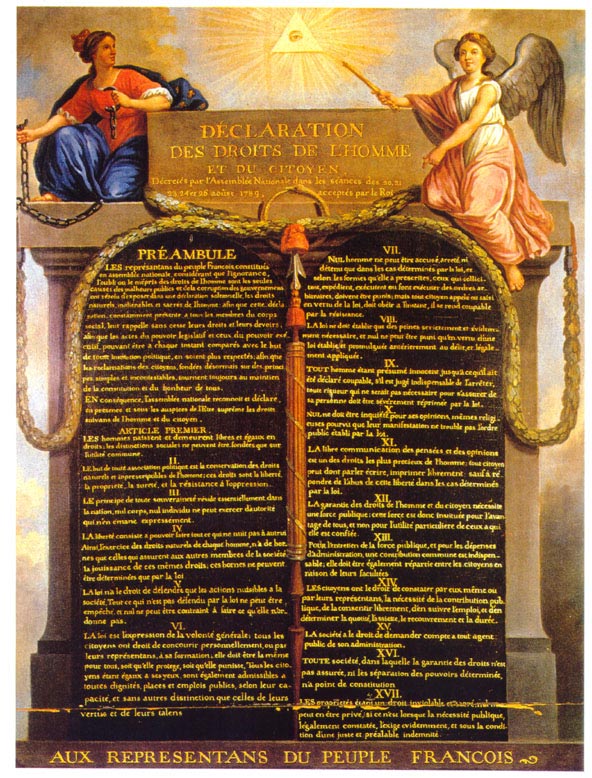 DÉCLARATION
DES DROITS DE L'HOMME
ET DU CITOYEN,
Décretés par l'Assemblée Nationale dans les séances des 20, 21
23, 24 et 26 août 1789, acceptés par le Roi
PRÉAMBULE
LES représentans du peuple François, constitués
en assemblée nationale, considérant que l'ignorance,
l'oubli ou le mépris des droits de l'homme sont les seules
causes des malheurs publics et de la corruption des gouvernemens
ont résolu d'exposer dans une déclaration solemnelle, les droits
naturels, inaliénables et sacrés de l'homme; afin que cette décla
ration, constamment présente à tous les membres du corps
social, leur rappelle sans cesse leurs droits et leurs devoirs;
afin que les actes du pouvoir législatif et ceux du pouvoir exé
cutif, pouvant être à chaque instant comparés avec le but
de toute institution politique, en soient plus respectés; afin que
les réclamations des citoyens, fondées désormais sur des prin
pes simples et incontestables, tournent toujours au maintien
de la constitution et du bonheur de tous.
EN conséquence, l'assemblée nationale reconnoit et déclare,
en présence et sous les auspices de l'Etre suprême les droits
suivans de l'homme et du citoyen.
ARTICLE PREMIER.
LES hommes naissent et demeurent libres et égaux en
droits; les distinctions sociales ne peuvent être fondées que sur
l'utilité commune.
II.
LE but de toute association politique est la conservation des droits
naturels et imprescriptibles de l'homme; ces droits sont la liberté,
la propriété, la sureté, et la résistance à l'oppression.
III.
LE principe de toute souveraineté réside essentiellement dans
la nation, nul corps, nul individu ne peut exercer d'autorité
qui n'en émane expressement.
IV.
LA liberté consiste à pouvoir faire tout ce qui ne nuit pas à autrui
Ainsi, l'exercice des droits naturels de chaque homme, n'a de bor-
nes que celles qui assurent aux autres membres de la société
la jouissance de ces mêmes droits; ces bornes ne peuvent
être déterminées que par la loi
V.
LA loi n'a le droit de défendre que les actions nuisibles à la
société. Tout ce qui n'est pas défendu par la loi ne peut être
empêché, et nul ne peut être contraint à faire ce qu'elle n'or-
donne pas.
VI.
LA loi est l'expression de la volonté générale; tous les
citoyens ont droit de concourir personnellement, ou par
leurs représentans, à sa formation; elle doit être la même
pour tous, soit qu'elle protege, soit qu'elle punisse, Tous les cito
yens étant égaux à ses yeux, sont également admissibles à
toutes dignités, places et emplois publics, selon leur ca
pacité, et sans autres distinction que celles de leurs
vertus et de leurs talens
VII.
NUL homme ne peut être accusé, arreté, ni
détenu que dans les cas déterminés par la loi, et
selon les formes qu'elle a prescrites, ceux qui sollici
tent, expédient, exécutent ou font exécuter des ordres ar-
bitraires, doivent être punis; mais tout citoyen appelé ou saisi
en vertu de la loi, doit obéir à l'instant, il se rend coupable
par la résistance.
VIII.
LA loi ne doit établir que des peines strictement et évidem-
ment nécessaires, et nul ne peut être puni qu'en vertu d'une
loi établie et promulguée antérieurement au délit, et légale
ment appliquée.
IX.
TOUT homme étant présumé innocent jusqu'à ce qu'il ait
été déclaré coupable, s'il est jugé indispensable de l'arrêter,
toute rigueur qui ne serait pas nécessaire pour s'assurer de
sa personne doit être sévèrement réprimée par la loi.
X.
NUL ne doit être inquiété pour ses opinions, mêmes religi
euses pourvu que leur manifestation ne trouble pas l'ordre
public établi par la loi.
XI.
LA libre communication des pensées et des opinions
est un des droits les plus precieux de l'homme; tout citoyen
peut dont parler écrire, imprimer librement: sauf à ré-
pondre de l'abus de cette liberté dans les cas déterminés
par la loi.
XII.
LA garantie des droits de l'homme et du citoyen nécessite
une force publique; cette force est donc instituée pour l'avan
tage de tous, et non pour l'utilité particuliere de ceux a qui
elle est confiée.
XIII.
POUR l'entretien de la force publique, et pour les dépenses
d'administration, une contribution commune est indispen-
sable; elle doit être également répartie entre les citoyens en
raison de leurs facultées
XIV.
LES citoyens ont le droit de constater par eux même ou
par leurs représentans, la nécessité de la contribution pub
lique, de la consentir librement, d'en suivre l'emploi, et d'en
déterminer la quotité, l'assiette, le recouvrement et la durée.
XV.
LA société a le droit de demander compte a tout agent
public de son administration.
XVI.
TOUTE société, dans laquelle la garantie des droits n'est
pas assurée, ni la séparation des pouvoirs déterminée,
n'a point de constitution
XVII.
LES proprietés étant un droit inviolable et sacré, nul ne
peut en être privé, si ce n'est lorsque la nécessité publique,
légalement constatée, l'exige evidemment, et sous la condi
tion d'une juste et préalable indemnité.
AUX REPRESENTANS DU PEUPLE FRANCOIS